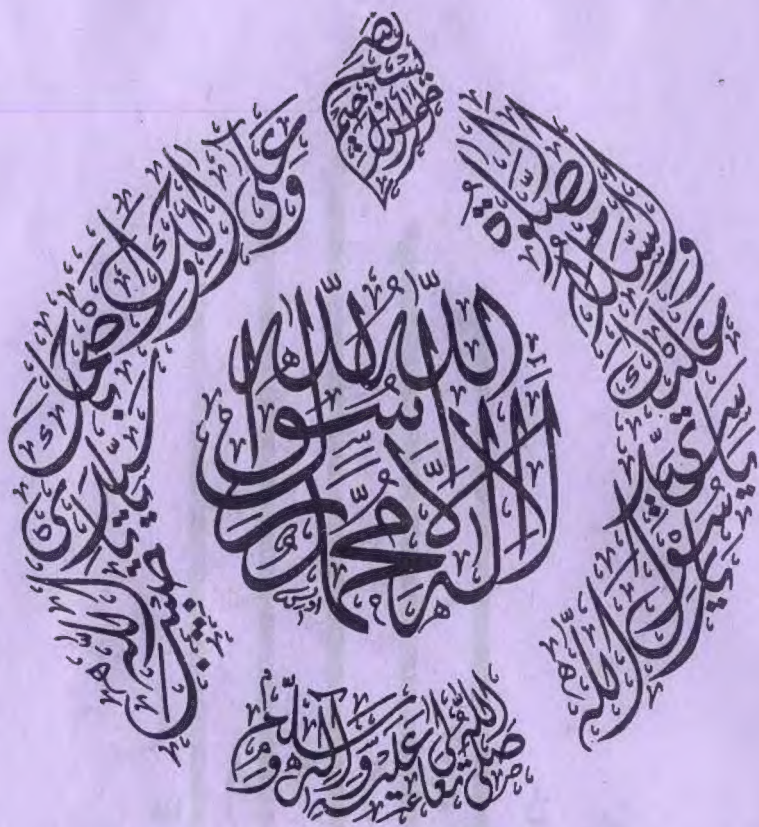 بسم الله الرحمن الرحيم
الصلوٰة والسلام عليك يا سيدي يا رسول الله
وعلى آلك واصحٰبك يا سيدي يا حبيب الله
لا إله إلا الله محمد رسول الله
صلى الله تعالى عليه وآله وسلم